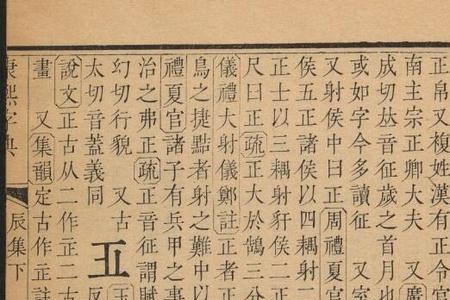 正帛又複姓漢有正令官
南主宗正卿大夫　又廣
成切𠀤音征歲之首月也
或如字今多讀征　又
又射侯中曰正周禮夏官
侯五正諸侯以四耦射
正士以三耦射豻侯二正
尺曰正疏正大於鵠三分
儀禮大射儀鄭註正者正
鳥之捷黠者射之難中以
禮夏官諸子有兵甲之事
治之弗正疏正音征謂賦
幻切行貌　又古
太切音蓋義同
玉
反
說文正古从二作𤴓二古
畫　又集韻定古作正註
康熙字典
辰集下